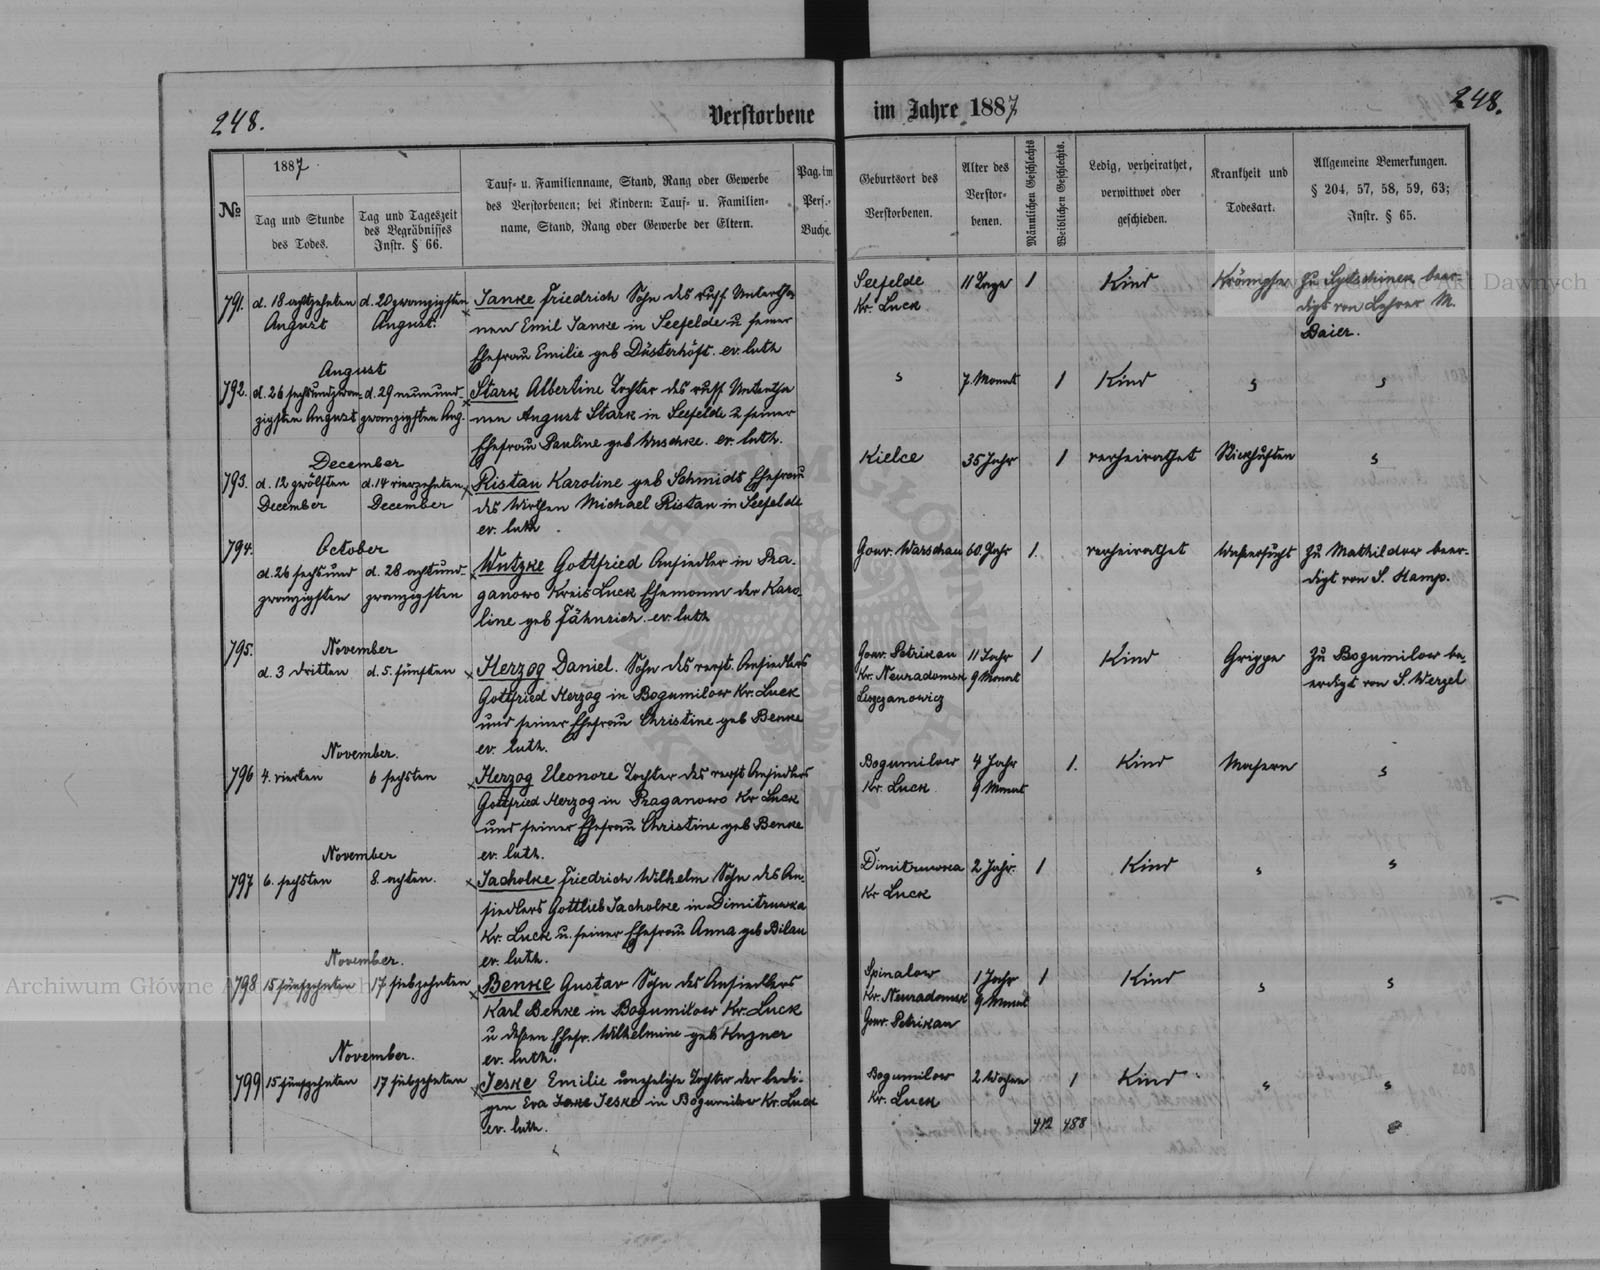 248.
Verstorbene im Jahre 1887
248.
№
1887
Tag und Stunde
des Todes.
Tag und Tageszeit
des Begräbnisses
Instr. § 66.
Tauf- u. Familienname, Stand, Rang oder Gewerbe
des Verstorbenen; bei Kindern: Tauf- u. Familien-
name, Stand, Rang oder Gewerbe der Eltern.
Pag. im
Pers.-
Buche.
Geburtsort des
Verstorbenen.
Alter des
Verstor-
benen.
Männlichen Geschlechts
Weiblichen Geschlechts.
Ledig, verheirathet,
verwittwet oder
geschieden.
Krankheit und
Todesart.
Allgemeine Bemerkungen.
§ 204, 57, 58, 59, 63;
Instr. § 65.
791.
d. 18 achtzehnten
August
d. 20 zwanzigsten
August.
Janke Friedrich Sohn des russ. Untertha
nen Emil Janke in Seefelde u seiner
Ehefrau Emilie geb Düsterhöft. ev. luth
Seefelde
Kr. Luck
11 Tage
1
Kind
Krämpfe
Zu beer-
digt von Lehrer M.
Baier.
August
792.
d. 26 sechsundzwan-
zigsten August
d. 29 neunund-
zwanzigsten Aug.
Stark Albertine Tochter des russ Untertha
nen August Stark in Seefelde u seiner
Ehefrau Pauline geb Wuschke. ev. luth.
7 Monat
1
Kind
December
793.
d. 12 zwölften
December
d. 14 vierzehnten
December
Ristau Karoline geb Schmidt Ehefrau
des Wirthen Michael Ristau in Seefelde
ev. luth
Kielce
35 Jahr
1
verheirathet
Stickhusten
794.
October
d. 26 sechsund
zwanzigsten
d. 28 achtund-
zwanzigsten
Wutzke Gottfried Ansiedler in Pra-
ganowo Kreis Luck Ehemann der Karo-
line geb Fähnrich. ev. luth
Gouv. Warschau
60. Jahr
1.
verheirathet
Wassersucht
Zu Mathildow beer-
digt von S. Hamp.
795.
November
d. 3 dritten
d. 5. fünften
Herzog Daniel. Sohn des verst. Ansiedlers
Gottfried Herzog in Bogumilow Kr. Luck
und seiner Ehefrau Christine geb Benke
ev. luth.
Gouv. Petrikau
Kr. Neuradomsk
11 Jahr
9 Monat
1
Kind
Grippe
Zu Bogumilow be-
erdigt von S. Werzel
November.
796
4. vierten
6 sechsten
Herzog Eleonore Tochter des verst Ansiedlers
Gottfried Herzog in Praganowo Kr Luck
und seiner Ehefrau Christine geb Benke
ev. luth.
Bogumilow
Kr. Luck
4 Jahr
9 Monat
1.
Kind
Masern
November
797
6. sechsten
8. achten.
Jacholke Friedrich Wilhelm Sohn des An-
siedlers Gottlieb Jacholke in Dimitruwka
Kr. Luck u. seiner Ehefrau Anna geb Bilau
ev. luth.
Dimitruwka
Kr Luck
2 Jahr.
1
Kind
November.
798
15 fünfzehnten
17 siebzehnten
Benke Gustav Sohn des Ansiedlers
Karl Benke in Bogumilow Kr. Luck
u dessen Ehefr. Wilhelmine geb Kuzner
ev. luth.
Spinalow
Kr. Neuradomsk
Gouv. Petrikau
1 Jahr
9 Monat
1
Kind
November.
799
15 fünfzehnten
17 siebzehnten
Jeske Emilie uneheliche Tochter der ledi-
gen Eva Jeske in Bogumilow Kr. Luck
ev. luth.
Bogumilow
Kr. Luck
2 Wochen
1
Kind
412 488
Archiwum Główne Akt Dawnych